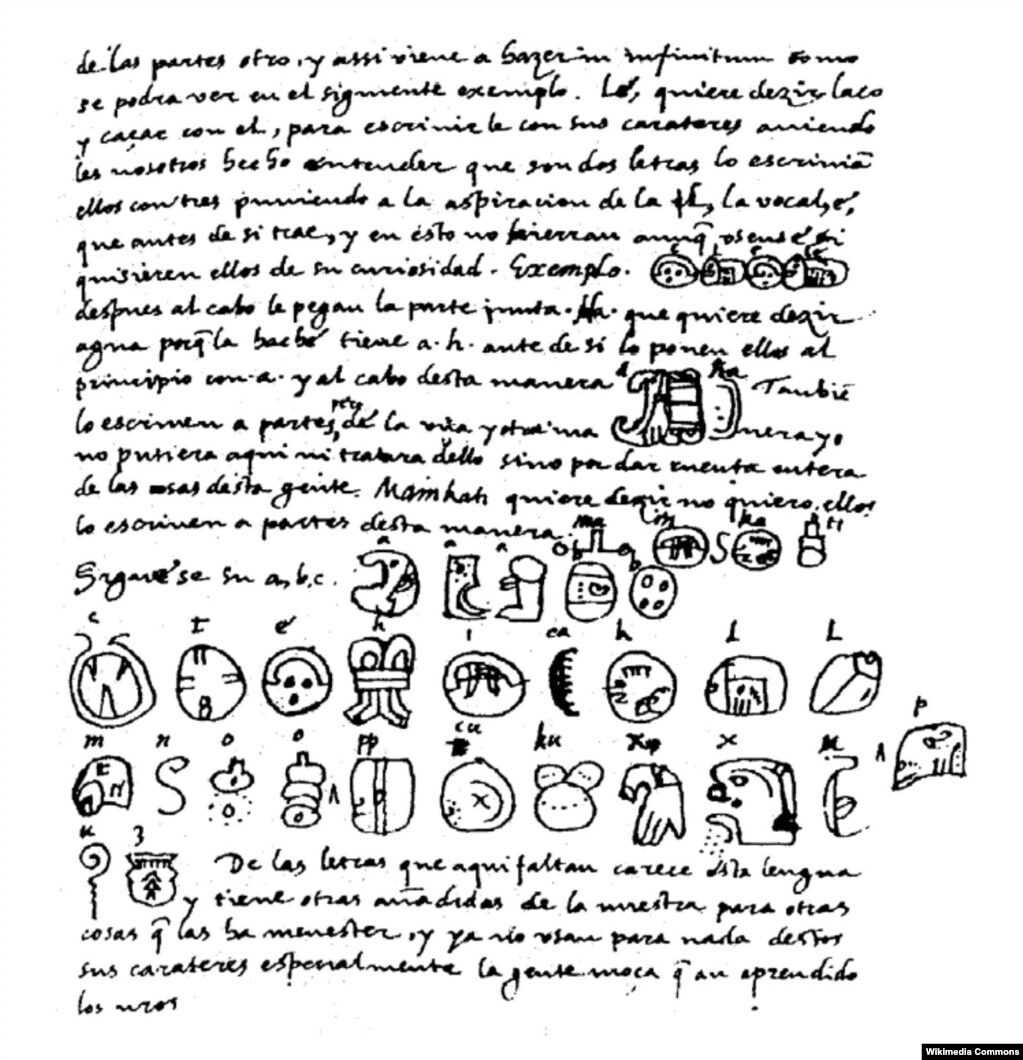 de las partes otro, y assi viene a hazer in infinitum como
se podra ver en el siguiente exemplo. Lé, quiere dezir laço
y caçar con el, para escrivir le con sus carateres aviendo
les nosotros hecho entender que son dos letras lo escrivian
ellos con tres puniendo a la aspiracion de la l, la vocal, é,
que antes de si trae, y en esto no hierran aunq̃ usense si
quisieren ellos de su curiosidad. Exemplo. e l e le
despues al cabo le pegan la parte junta. Ha. que quiere dezir
agua porq̃ la haché tiene a. h. ante de si lo ponen ellos al
principio con. a. y al cabo desta manera a ha Tanbiẽ
lo escriven a partes, pero de la una y otra ma nera yo
no pusiera aqui ni tratara dello sino por dar cuenta entera
de las cosas desta gente. Mainkati quiere dezir no quiero, ellos
lo escriven a partes desta manera. ma i n ka ti
Siguese su a, b, c. a a a b b
c t é h i ca k l l
m n o o pp cu ku x x u p
u z De las letras que aqui faltan carece esta lengua
y tiene otras añadidas de la nuestra para otras
cosas q̃ las ha menester, y ya no usan para nada destos
sus carateres especialmente la gente moça q̃ an aprendido
los nros
Wikimedia Commons